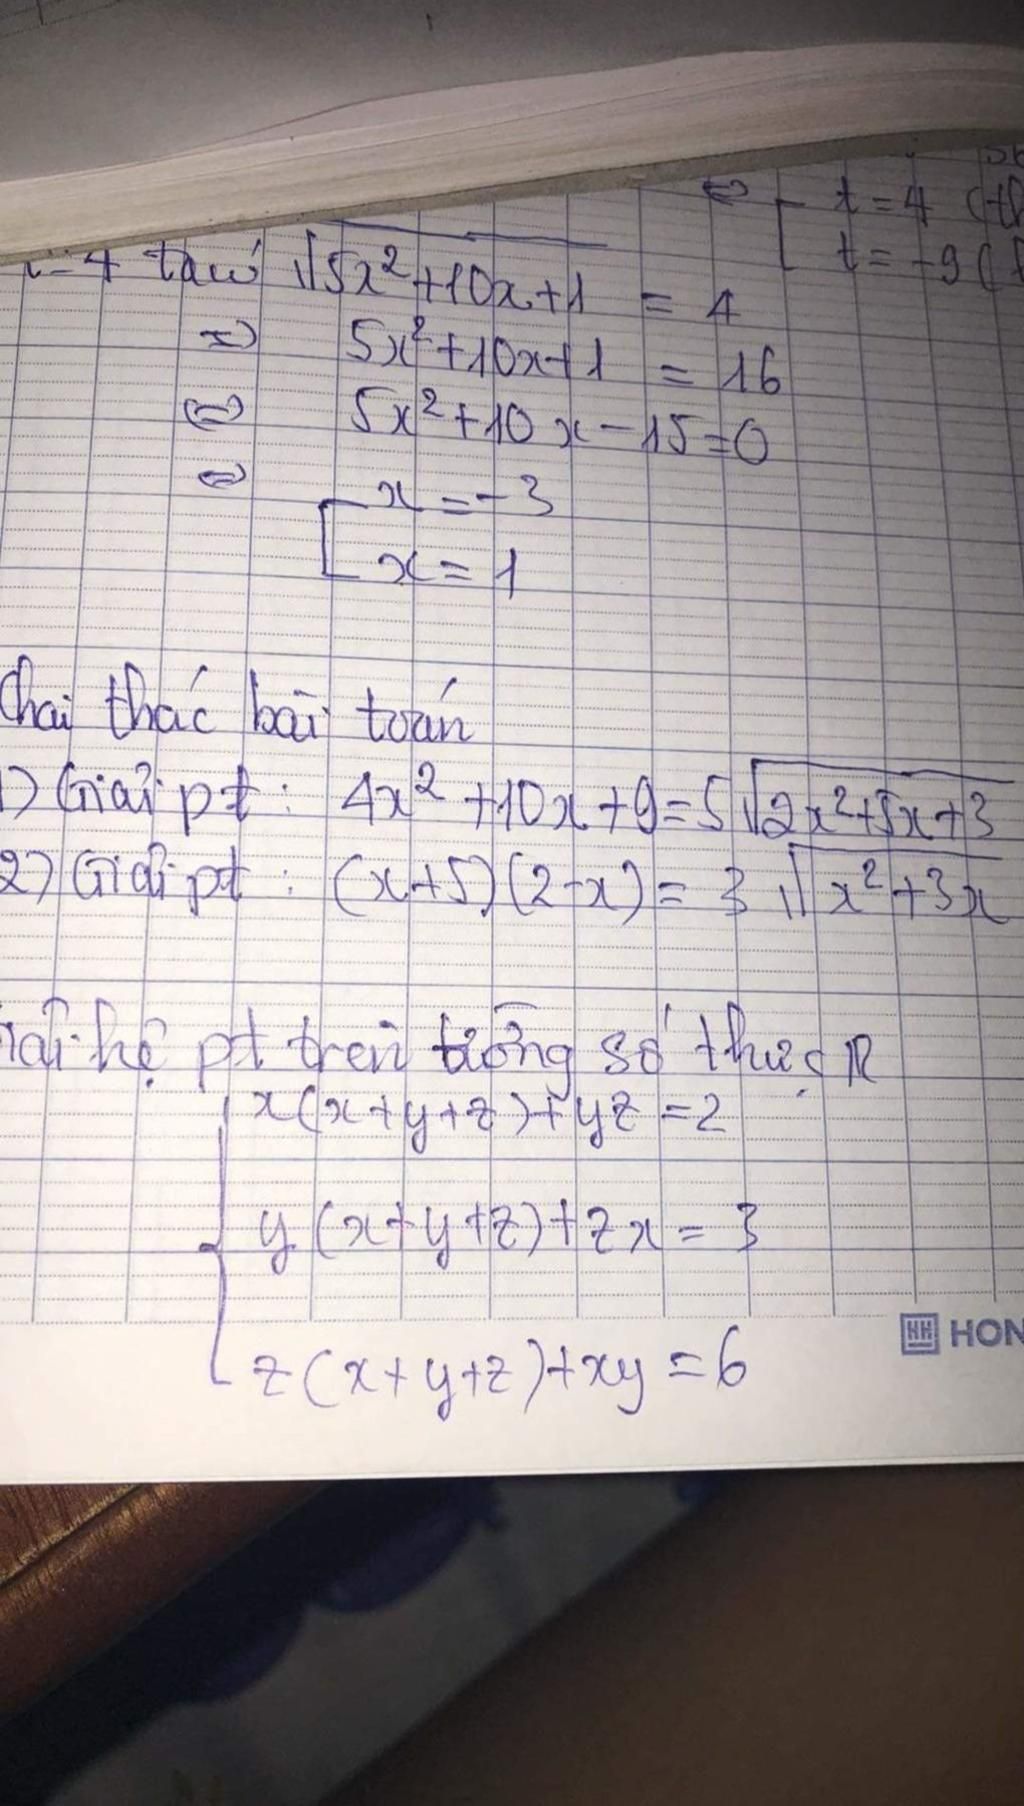 ⇔ [ t = 4
t = -9
= 4 ta có √5x²+10x+1 = 4
⇔ 5x²+10x+1 = 16
⇔ 5x²+10x-15=0
⇔ [ x = -3
x = 1
Khai thác bài toán
1) Giải pt : 4x²+10x+9=5√2x²+5x+3
2) Giải pt : (x+5)(2-x) = 3√x²+3x
hệ pt trên trường số thực R
{ x(x+y+z)+yz=2
y(x+y+z)+zx=3
z(x+y+z)+xy=6
HH HON